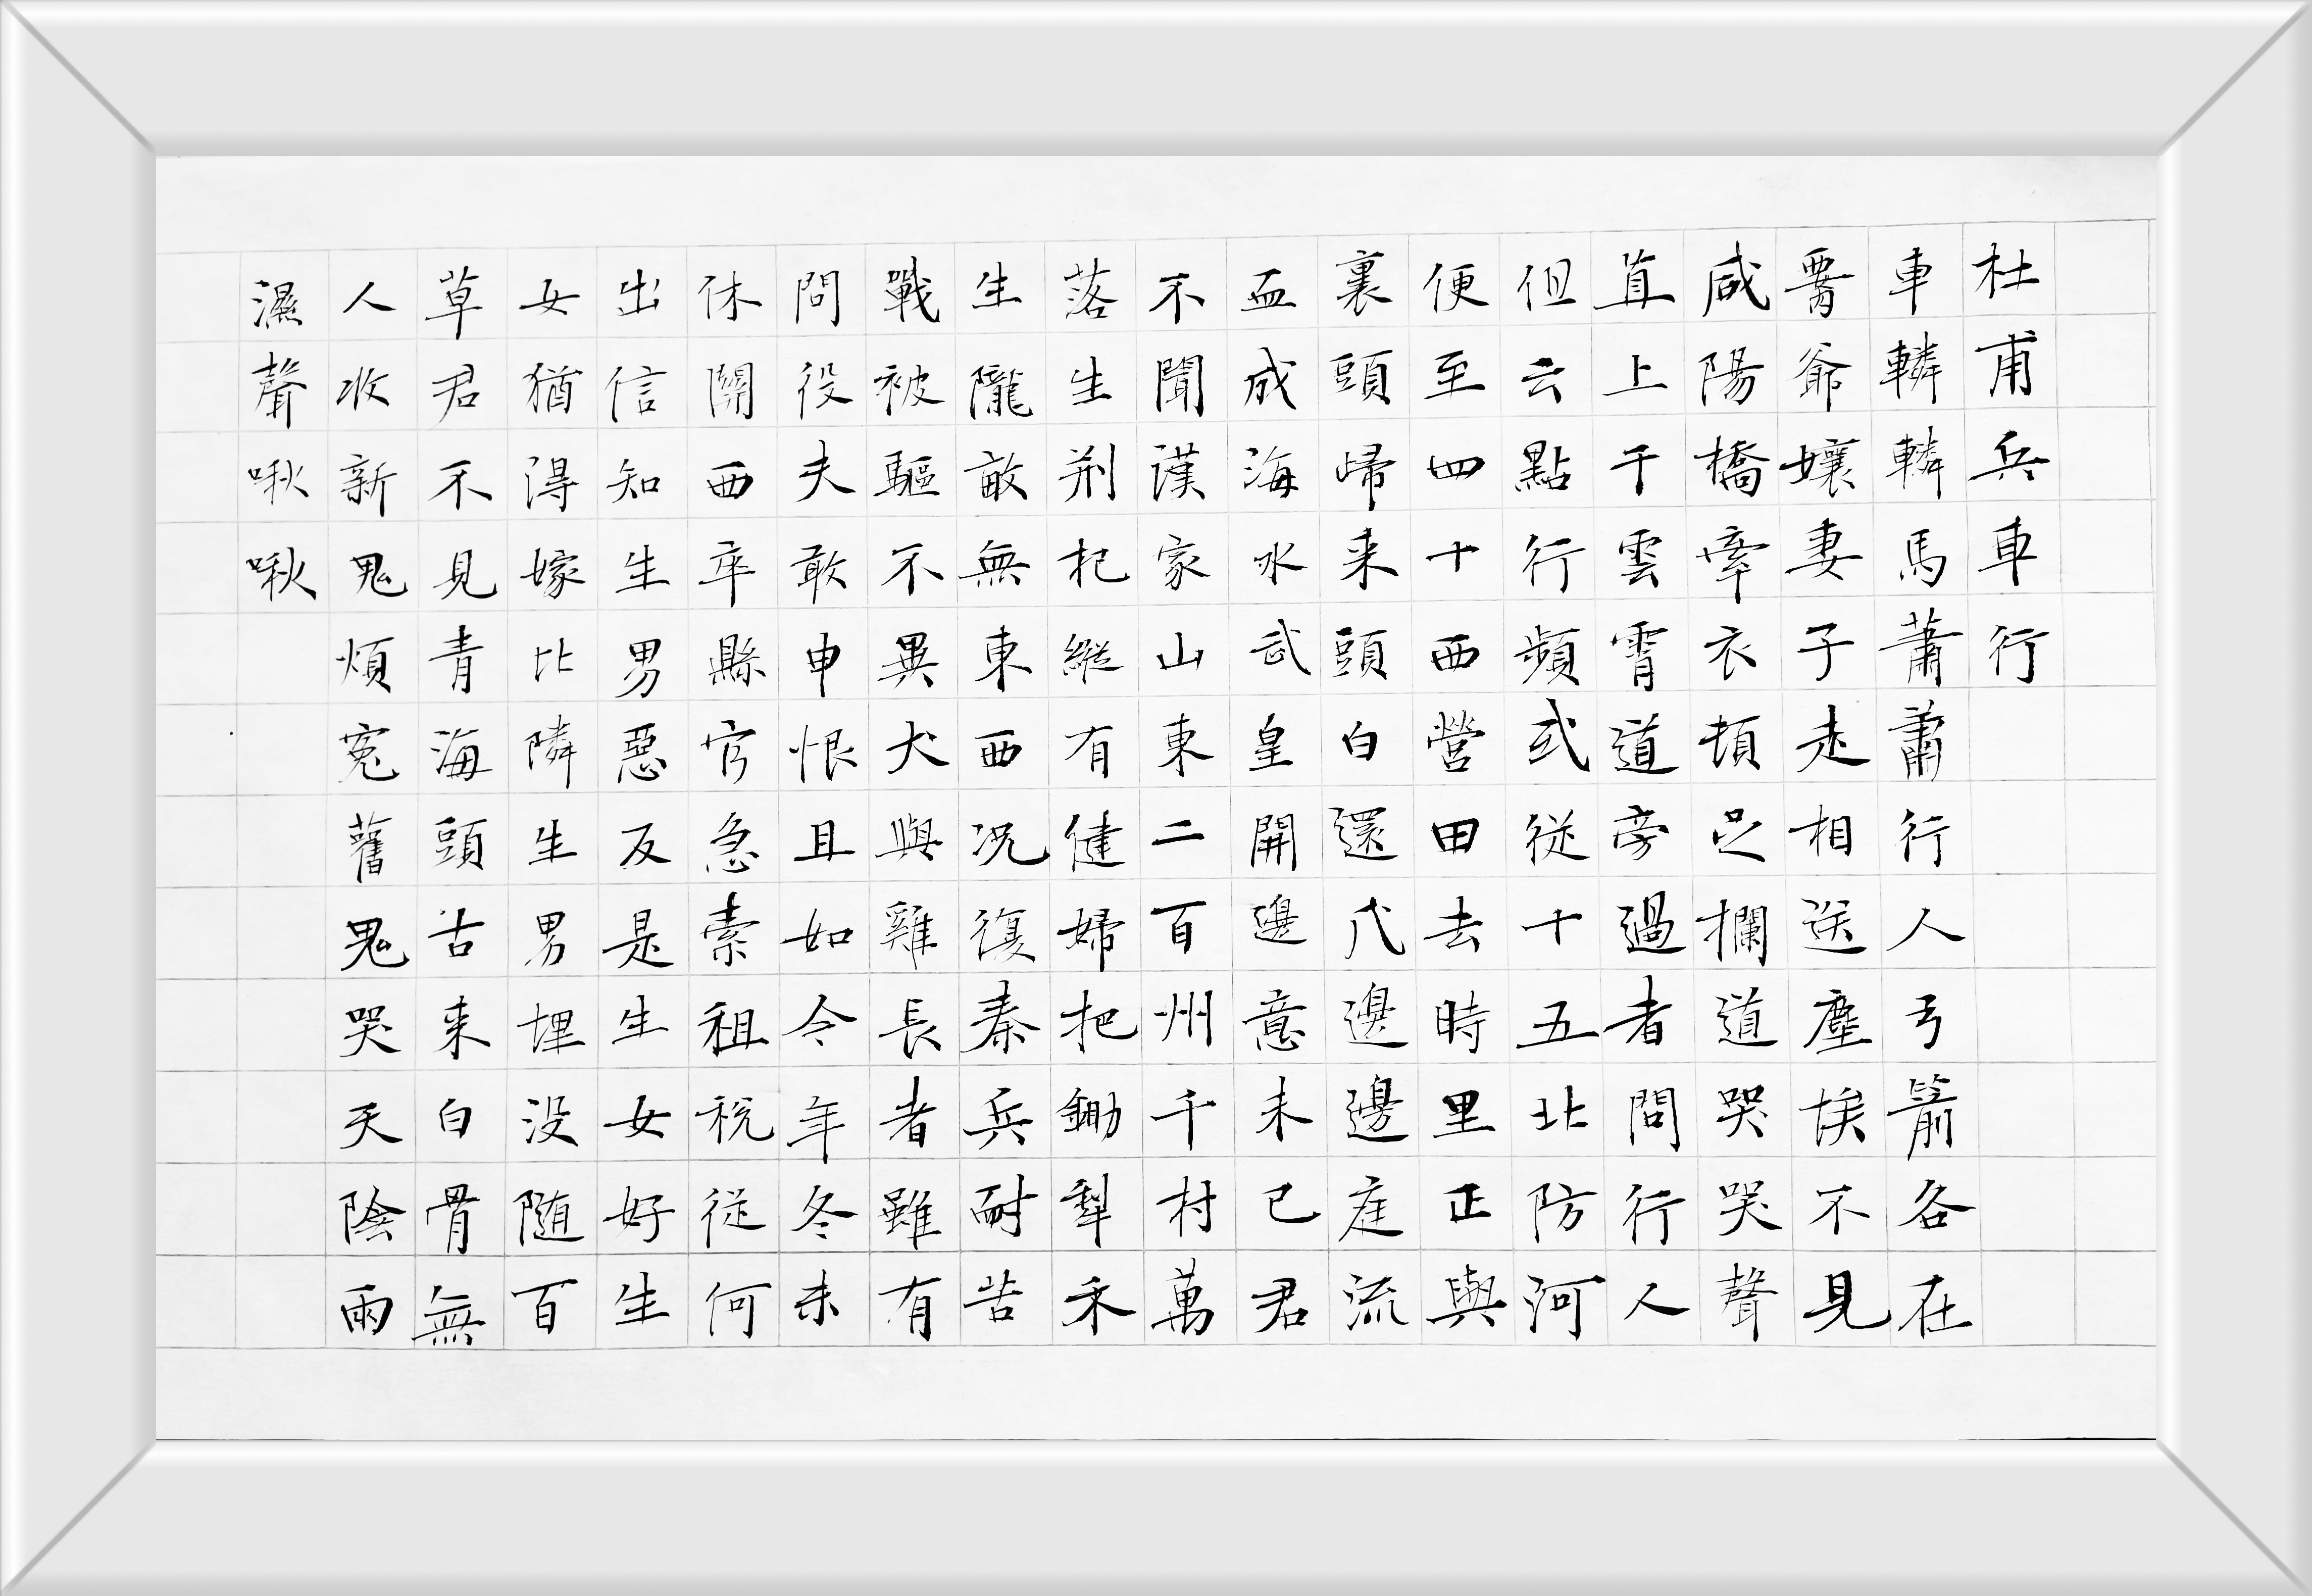 杜甫兵車行
車轔轔馬蕭蕭行人弓箭各在
腰爺孃妻子走相送塵埃不見
咸陽橋牽衣頓足攔道哭哭聲
直上干雲霄道旁過者問行人
但云點行頻或從十五北防河
便至四十西營田去時里正與
裹頭歸来頭白還戍邊邊庭流
血成海水武皇開邊意未已君
不聞漢家山東二百州千村萬
落生荆杞縱有健婦把鋤犁禾
生隴畝無東西況復秦兵耐苦
戰被驅不異犬與雞長者雖有
問役夫敢申恨且如今年冬未
休關西卒縣官急索租稅從何
出信知生男惡反是生女好生
女猶得嫁比隣生男埋没随百
草君不見青海頭古来白骨無
人收新鬼煩冤舊鬼哭天陰雨
濕聲啾啾